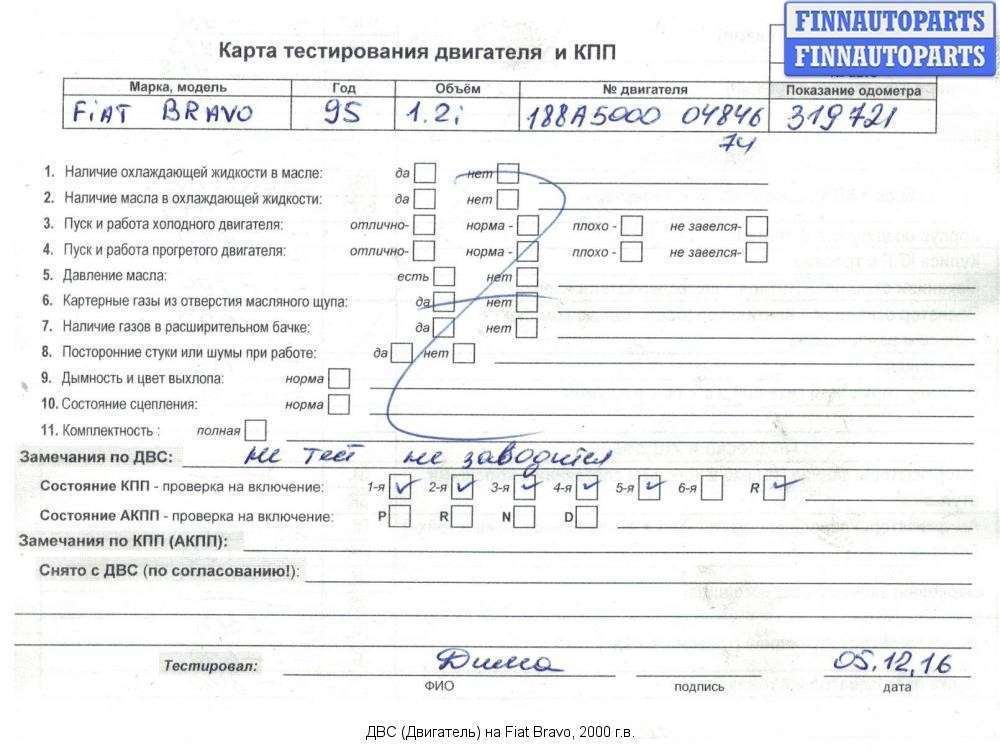 FINNAUTOPARTS
FINNAUTOPARTS
Карта тестирования двигателя и КПП
Марка, модель Год Объём № двигателя Показание одометра
FiAT BRAVO 95 1.2i 188A5000 04846 319721
74
1. Наличие охлаждающей жидкости в масле: да нет
2. Наличие масла в охлаждающей жидкости: да нет
3. Пуск и работа холодного двигателя: отлично- норма - плохо - не завелся-
4. Пуск и работа прогретого двигателя: отлично- норма - плохо - не завелся-
5. Давление масла: есть нет
6. Картерные газы из отверстия масляного щупа: да нет
7. Наличие газов в расширительном бачке: да нет
8. Посторонние стуки или шумы при работе: да нет
9. Дымность и цвет выхлопа: норма
10. Состояние сцепления: норма
11. Комплектность : полная
Замечания по ДВС: не тест не заводится
Состояние КПП - проверка на включение: 1-я 2-я 3-я 4-я 5-я 6-я R
Состояние АКПП - проверка на включение: P R N D
Замечания по КПП (АКПП):
Снято с ДВС (по согласованию!):
Тестировал: Дима 05.12.16
ФИО подпись дата
ДВС (Двигатель) на Fiat Bravo, 2000 г.в.